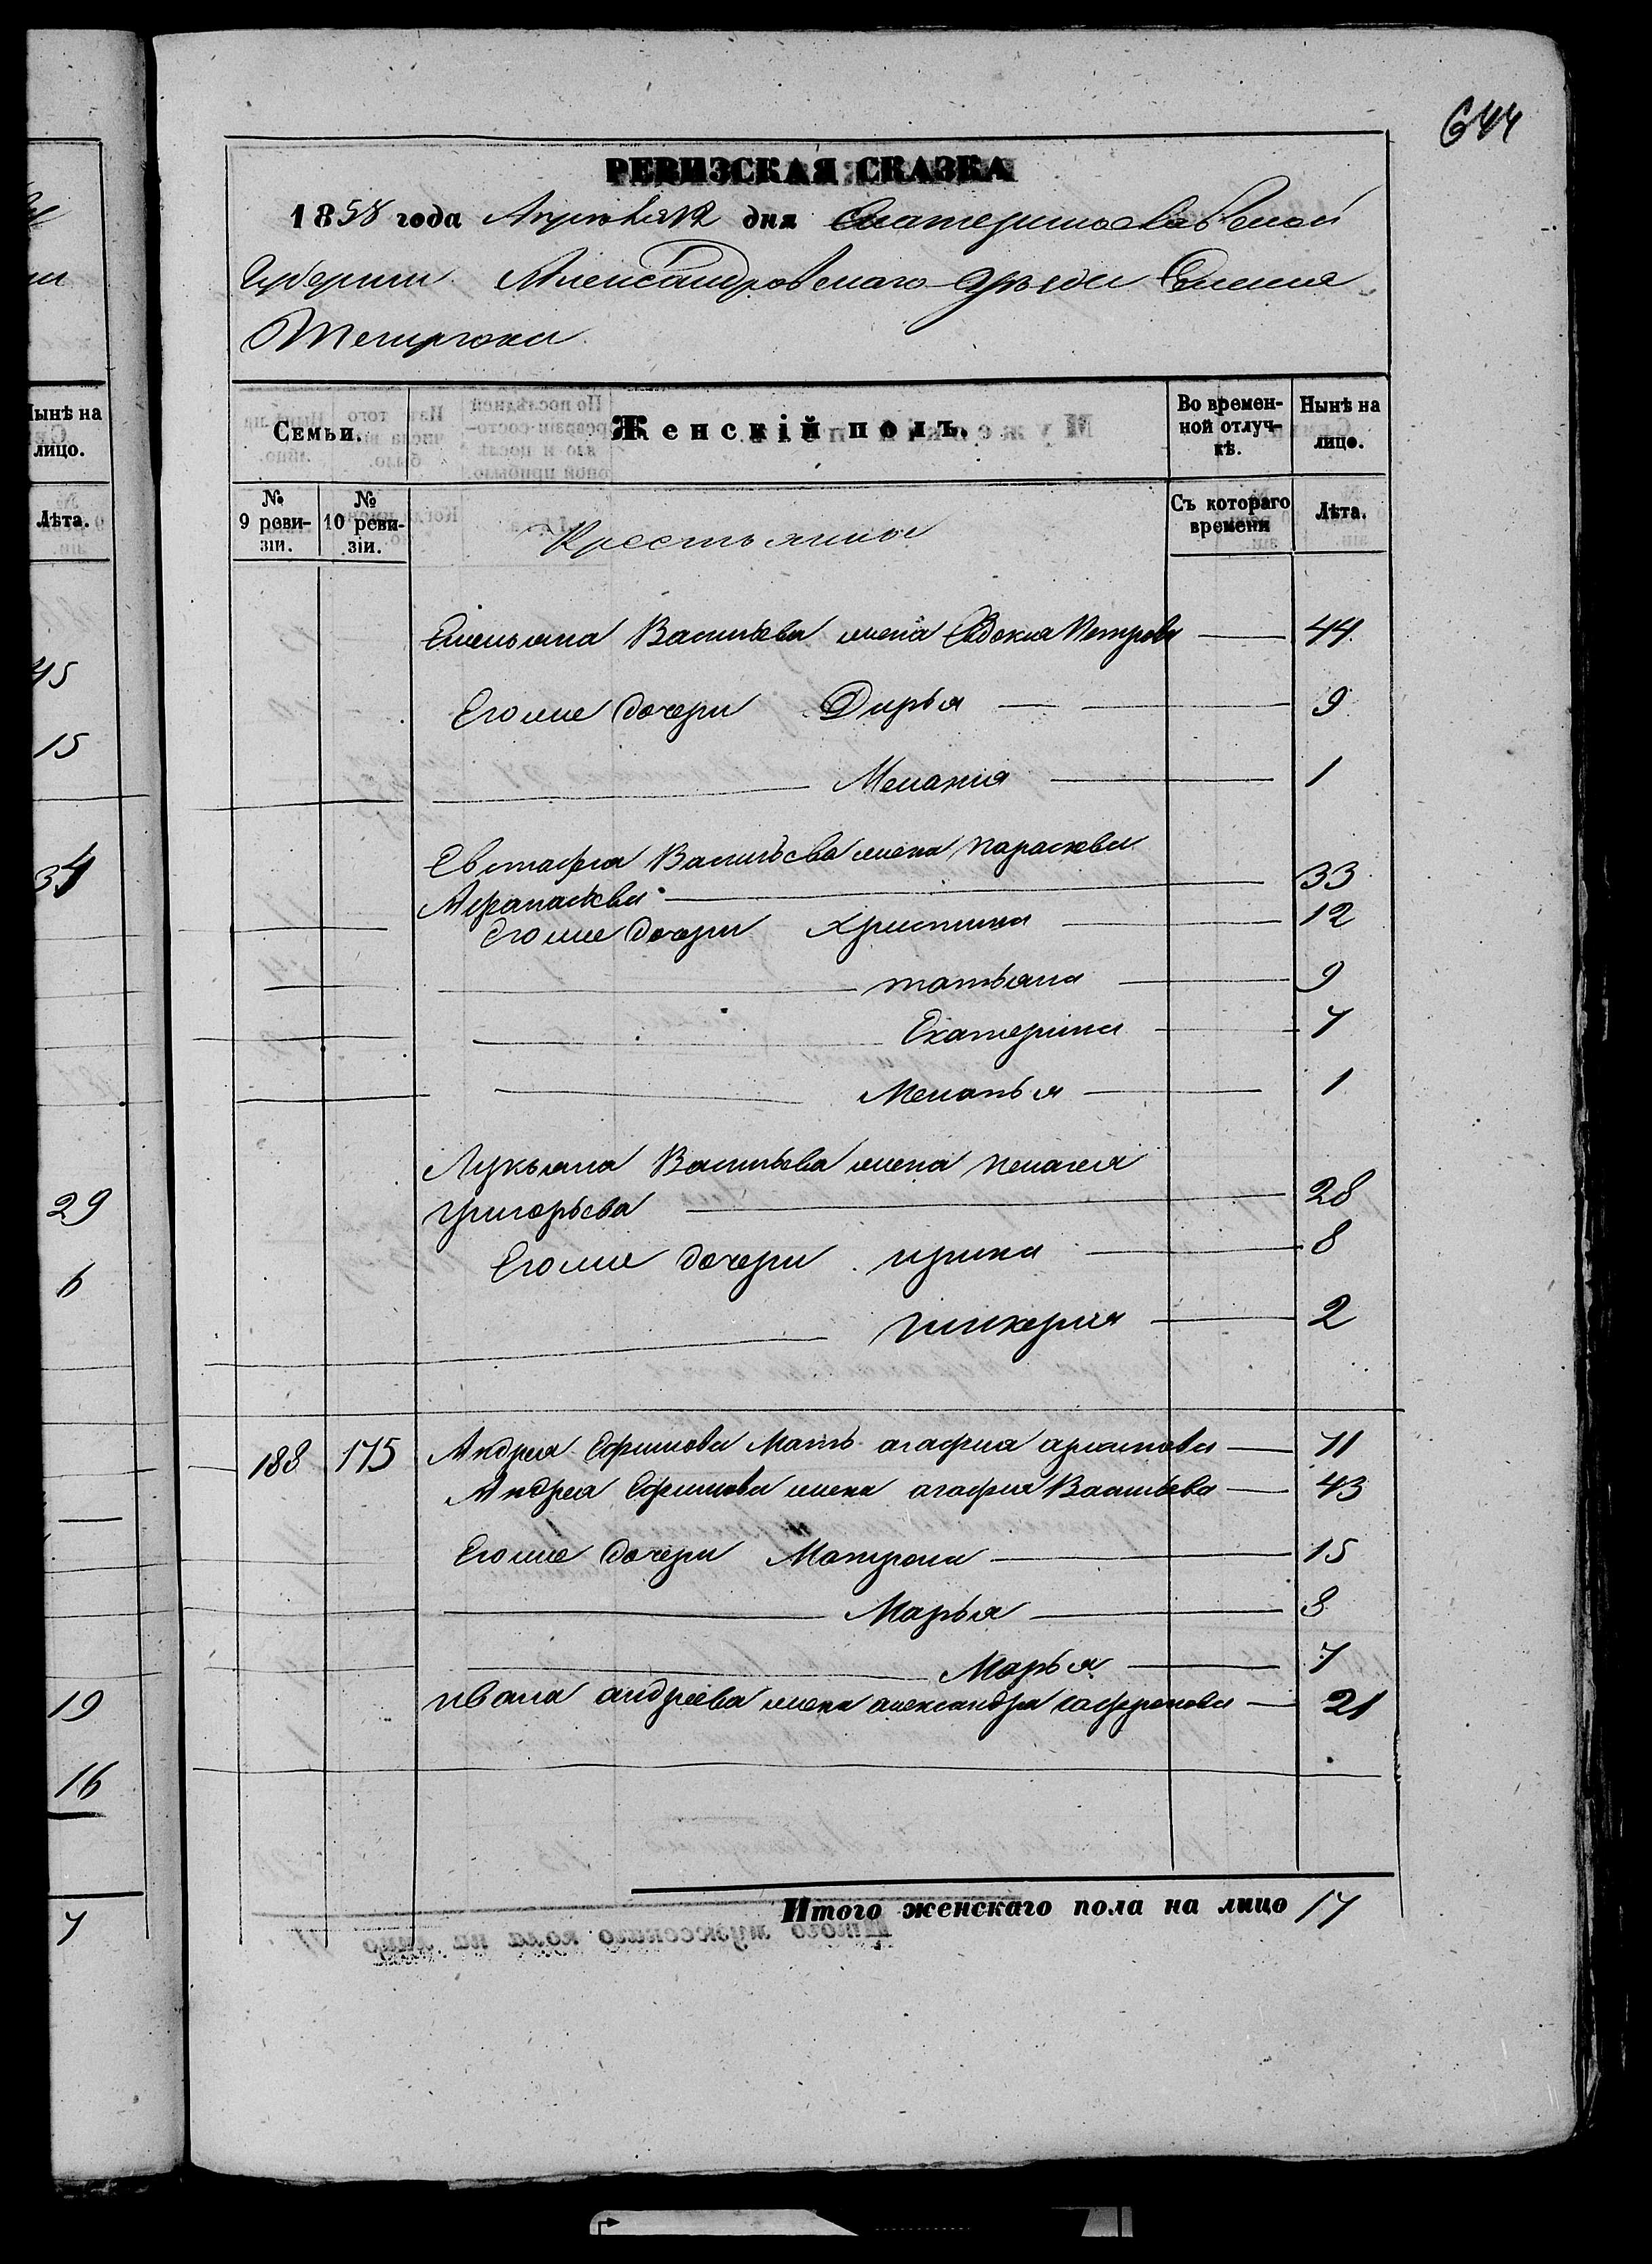 644
РЕВИЗСКАЯ СКАЗКА
1858 года Апреля 12 дня Екатеринославской
Губернии Александровского уезда Селения
Темрюка
Семьи.
Женскій полъ.
Во времен-
ной отлуч-
кѣ.
Нынѣ на
лицо.
№
9 реви-
зіи.
№
10 реви-
зіи.
Крестьянки
Съ котораго
времени
Лѣта.
Емельяна Васильева жена Евдокия Петрова 44
Его же дочери Дарья 9
Мелания 1
Евстафия Васильева жена Параскева
Афанасьева 33
Его же дочери Христина 12
татьяна 9
Екатерина 7
Меланья 1
Лукьяна Васильева жена пелагея
григорьева 28
Его же дочери ирина 8
гликерия 2
188 175 Андрея Ефимова Мать агафия архипова 71
Андрея Ефимова жена агафия Васильева 43
Его же дочери Матрона 15
Марья 8
Марья 7
ивана андреева жена александра сафронова 21
Итого женскаго пола на лицо 17
Нынѣ на
лицо.
Лѣта.
45
15
34
29
6
19
16
7